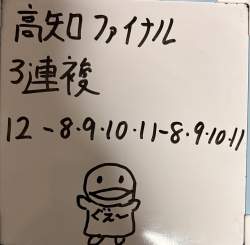 高知ファイナル
3連複
12-8・9・10・11-8・9・10・11
ぐえ〜